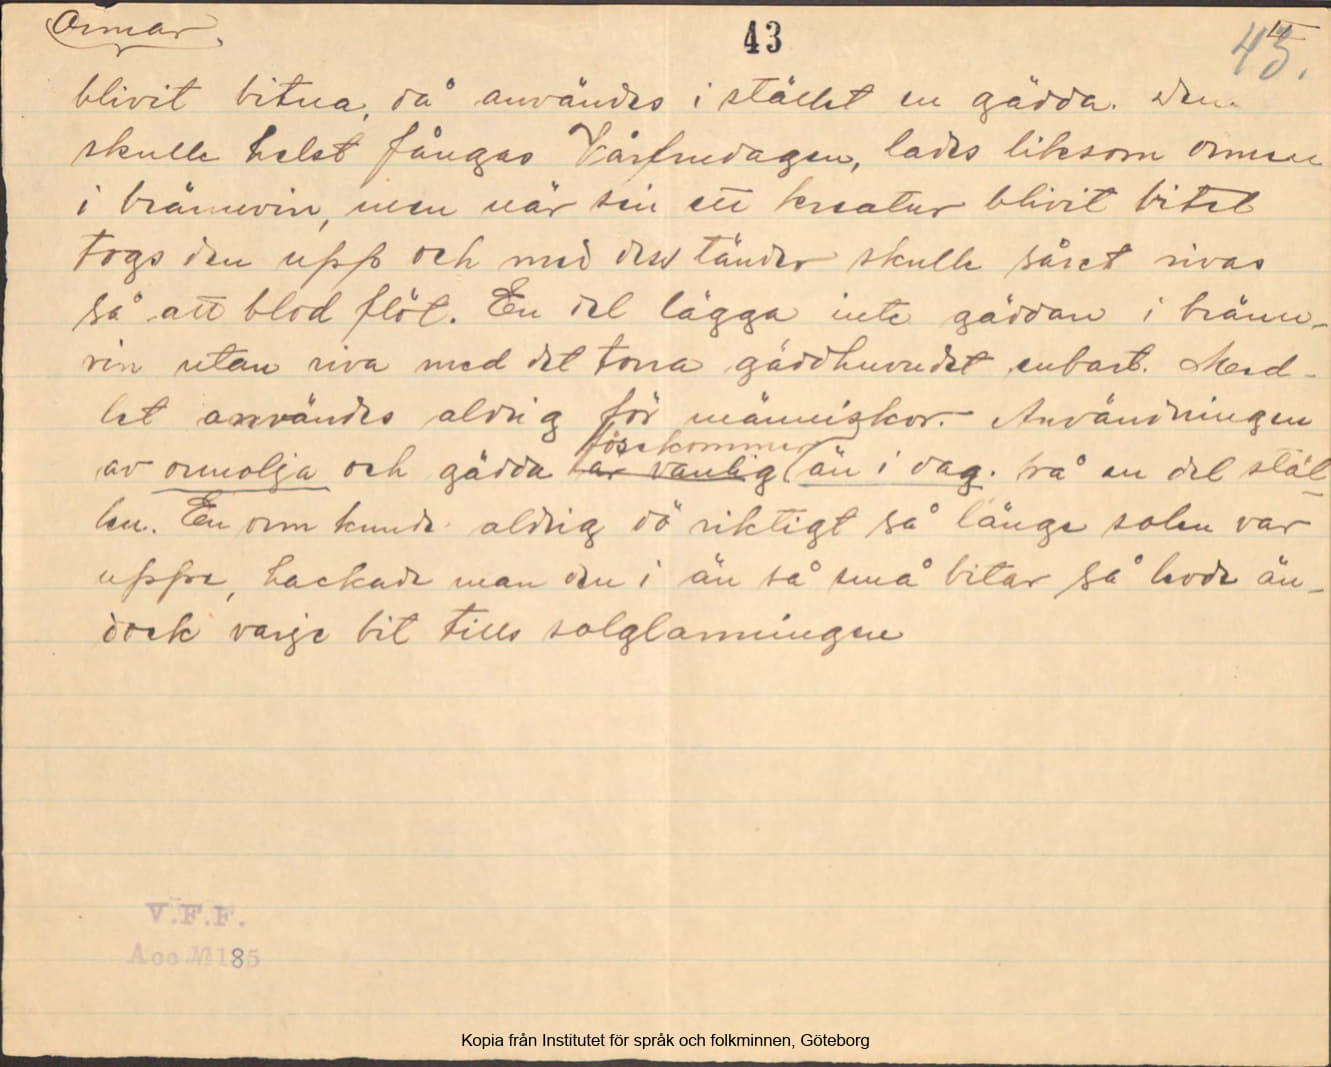 Ormar.
43
43.
blivit bitna, då användes i stället en gädda. Den
skulle helst fångas Vårfrudagen, lades liksom ormen
i brännvin, men när sen ett kreatur blivit bitet
togs den upp och med dess tänder skulle såret rivas
så att blod flöt. En del lägga inte gäddan i bränn-
vin utan riva med det torra gäddhuvudet enbart. Med-
let användes aldrig för människor. Användningen
förekommer
av ormolja och gädda är vanlig än i dag. på en del stäl-
len. En orm kunde aldrig dö riktigt så länge solen var
uppe, hackade man den i än så små bitar så levde än-
dock varje bit tills solglanningen
V.F.F.
Acc. № 185
Kopia från Institutet för språk och folkminnen, Göteborg